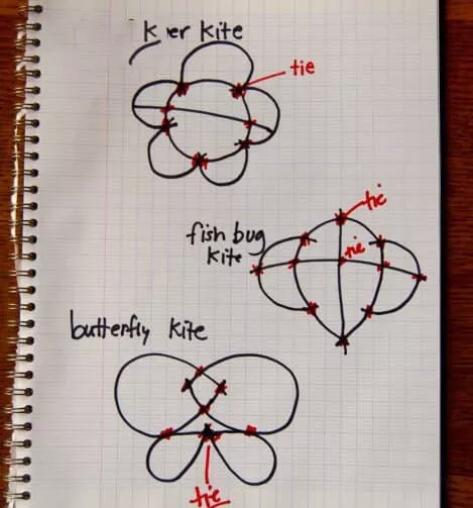 er kite
tie
tie
fish bug
tie
kite
butterfly kite
tie